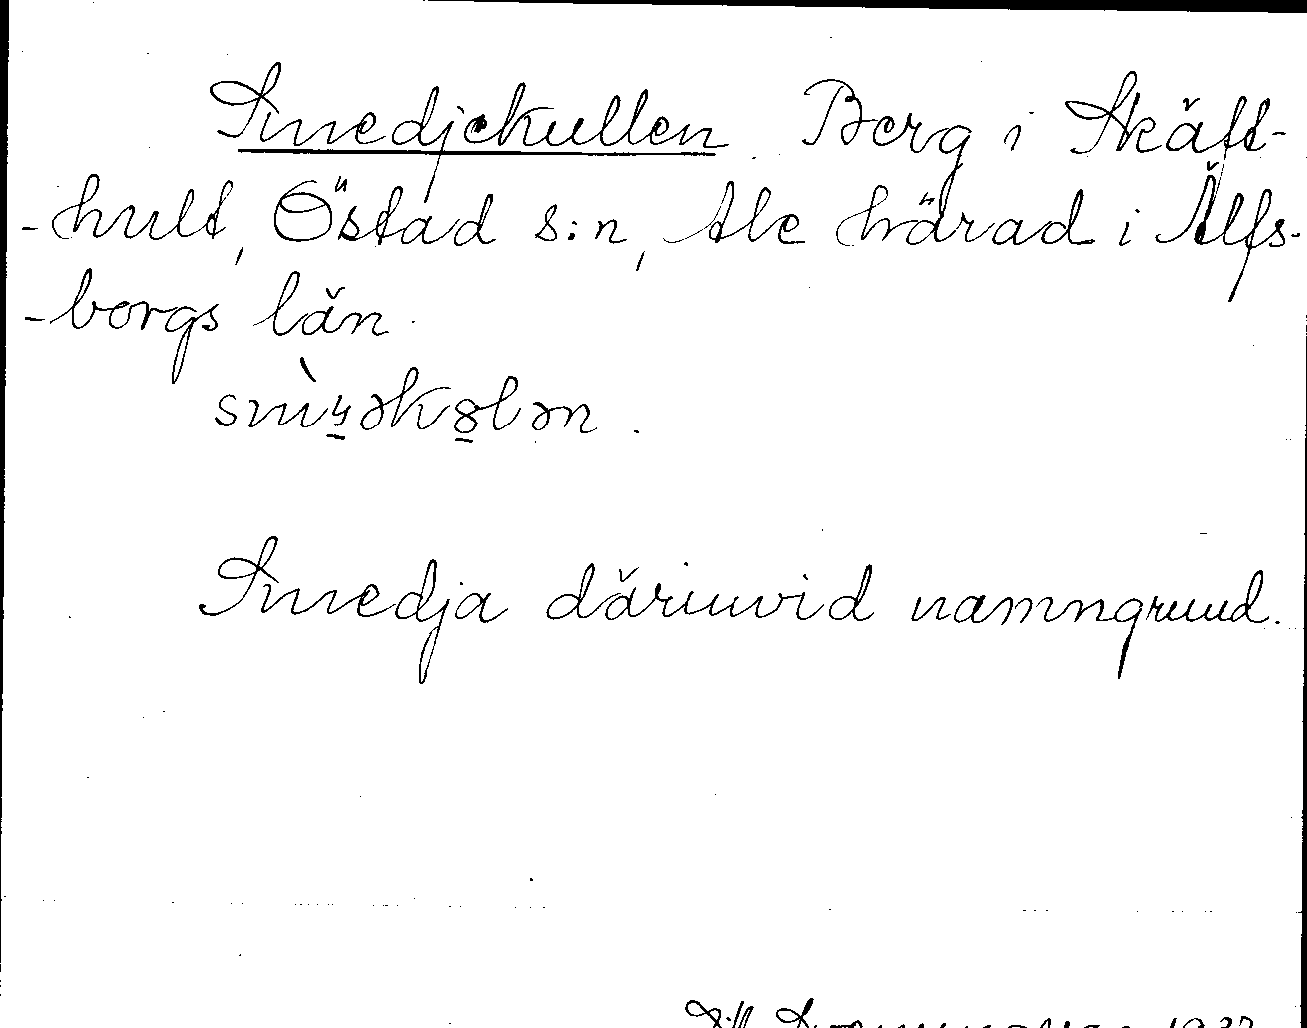 Smedjekullen. Berg i Skäft-
-hult, Östad s:n, Ale härad i Älfs-
-borgs län.
smìɥ̱əkȣ̱lən.
Smedja därinvid namngrund.